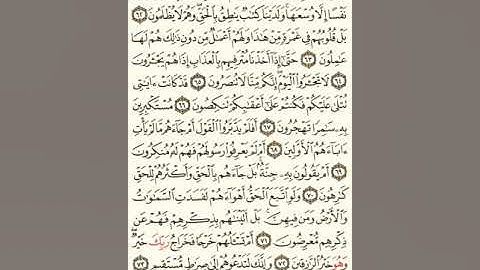 نَفْسًا إِلَّا وُسْعَهَا وَلَدَيْنَا كِتَٰبٌ يَنطِقُ بِٱلْحَقِّ وَهُمْ لَا يُظْلَمُونَ ٦٢
بَلْ قُلُوبُهُمْ فِى غَمْرَةٍ مِّنْ هَٰذَا وَلَهُمْ أَعْمَٰلٌ مِّن دُونِ ذَٰلِكَ هُمْ لَهَا
عَٰمِلُونَ ٦٣ حَتَّىٰٓ إِذَآ أَخَذْنَا مُتْرَفِيهِم بِٱلْعَذَابِ إِذَا هُمْ يَجْـَٔرُونَ
٦٤ لَا تَجْـَٔرُوا۟ ٱلْيَوْمَ إِنَّكُم مِّنَّا لَا تُنصَرُونَ ٦٥ قَدْ كَانَتْ ءَايَٰتِى
تُتْلَىٰ عَلَيْكُمْ فَكُنتُمْ عَلَىٰٓ أَعْقَٰبِكُمْ تَنكِصُونَ ٦٦ مُسْتَكْبِرِينَ
بِهِۦ سَٰمِرًا تَهْجُرُونَ ٦٧ أَفَلَمْ يَدَّبَّرُوا۟ ٱلْقَوْلَ أَمْ جَآءَهُم مَّا لَمْ يَأْتِ
ءَابَآءَهُمُ ٱلْأَوَّلِينَ ٦٨ أَمْ لَمْ يَعْرِفُوا۟ رَسُولَهُمْ فَهُمْ لَهُۥ مُنكِرُونَ
٦٩ أَمْ يَقُولُونَ بِهِۦ جِنَّةٌۢ بَلْ جَآءَهُم بِٱلْحَقِّ وَأَكْثَرُهُمْ لِلْحَقِّ
كَٰرِهُونَ ٧٠ وَلَوِ ٱتَّبَعَ ٱلْحَقُّ أَهْوَآءَهُمْ لَفَسَدَتِ ٱلسَّمَٰوَٰتُ
وَٱلْأَرْضُ وَمَن فِيهِنَّ بَلْ أَتَيْنَٰهُم بِذِكْرِهِمْ فَهُمْ عَن
ذِكْرِهِم مُّعْرِضُونَ ٧١ أَمْ تَسْـَٔلُهُمْ خَرْجًا فَخَرَاجُ رَبِّكَ خَيْرٌ
وَهُوَ خَيْرُ ٱلرَّٰزِقِينَ ٧٢ وَإِنَّكَ لَتَدْعُوهُمْ إِلَىٰ صِرَٰطٍ مُّسْتَقِيمٍ ٧٣